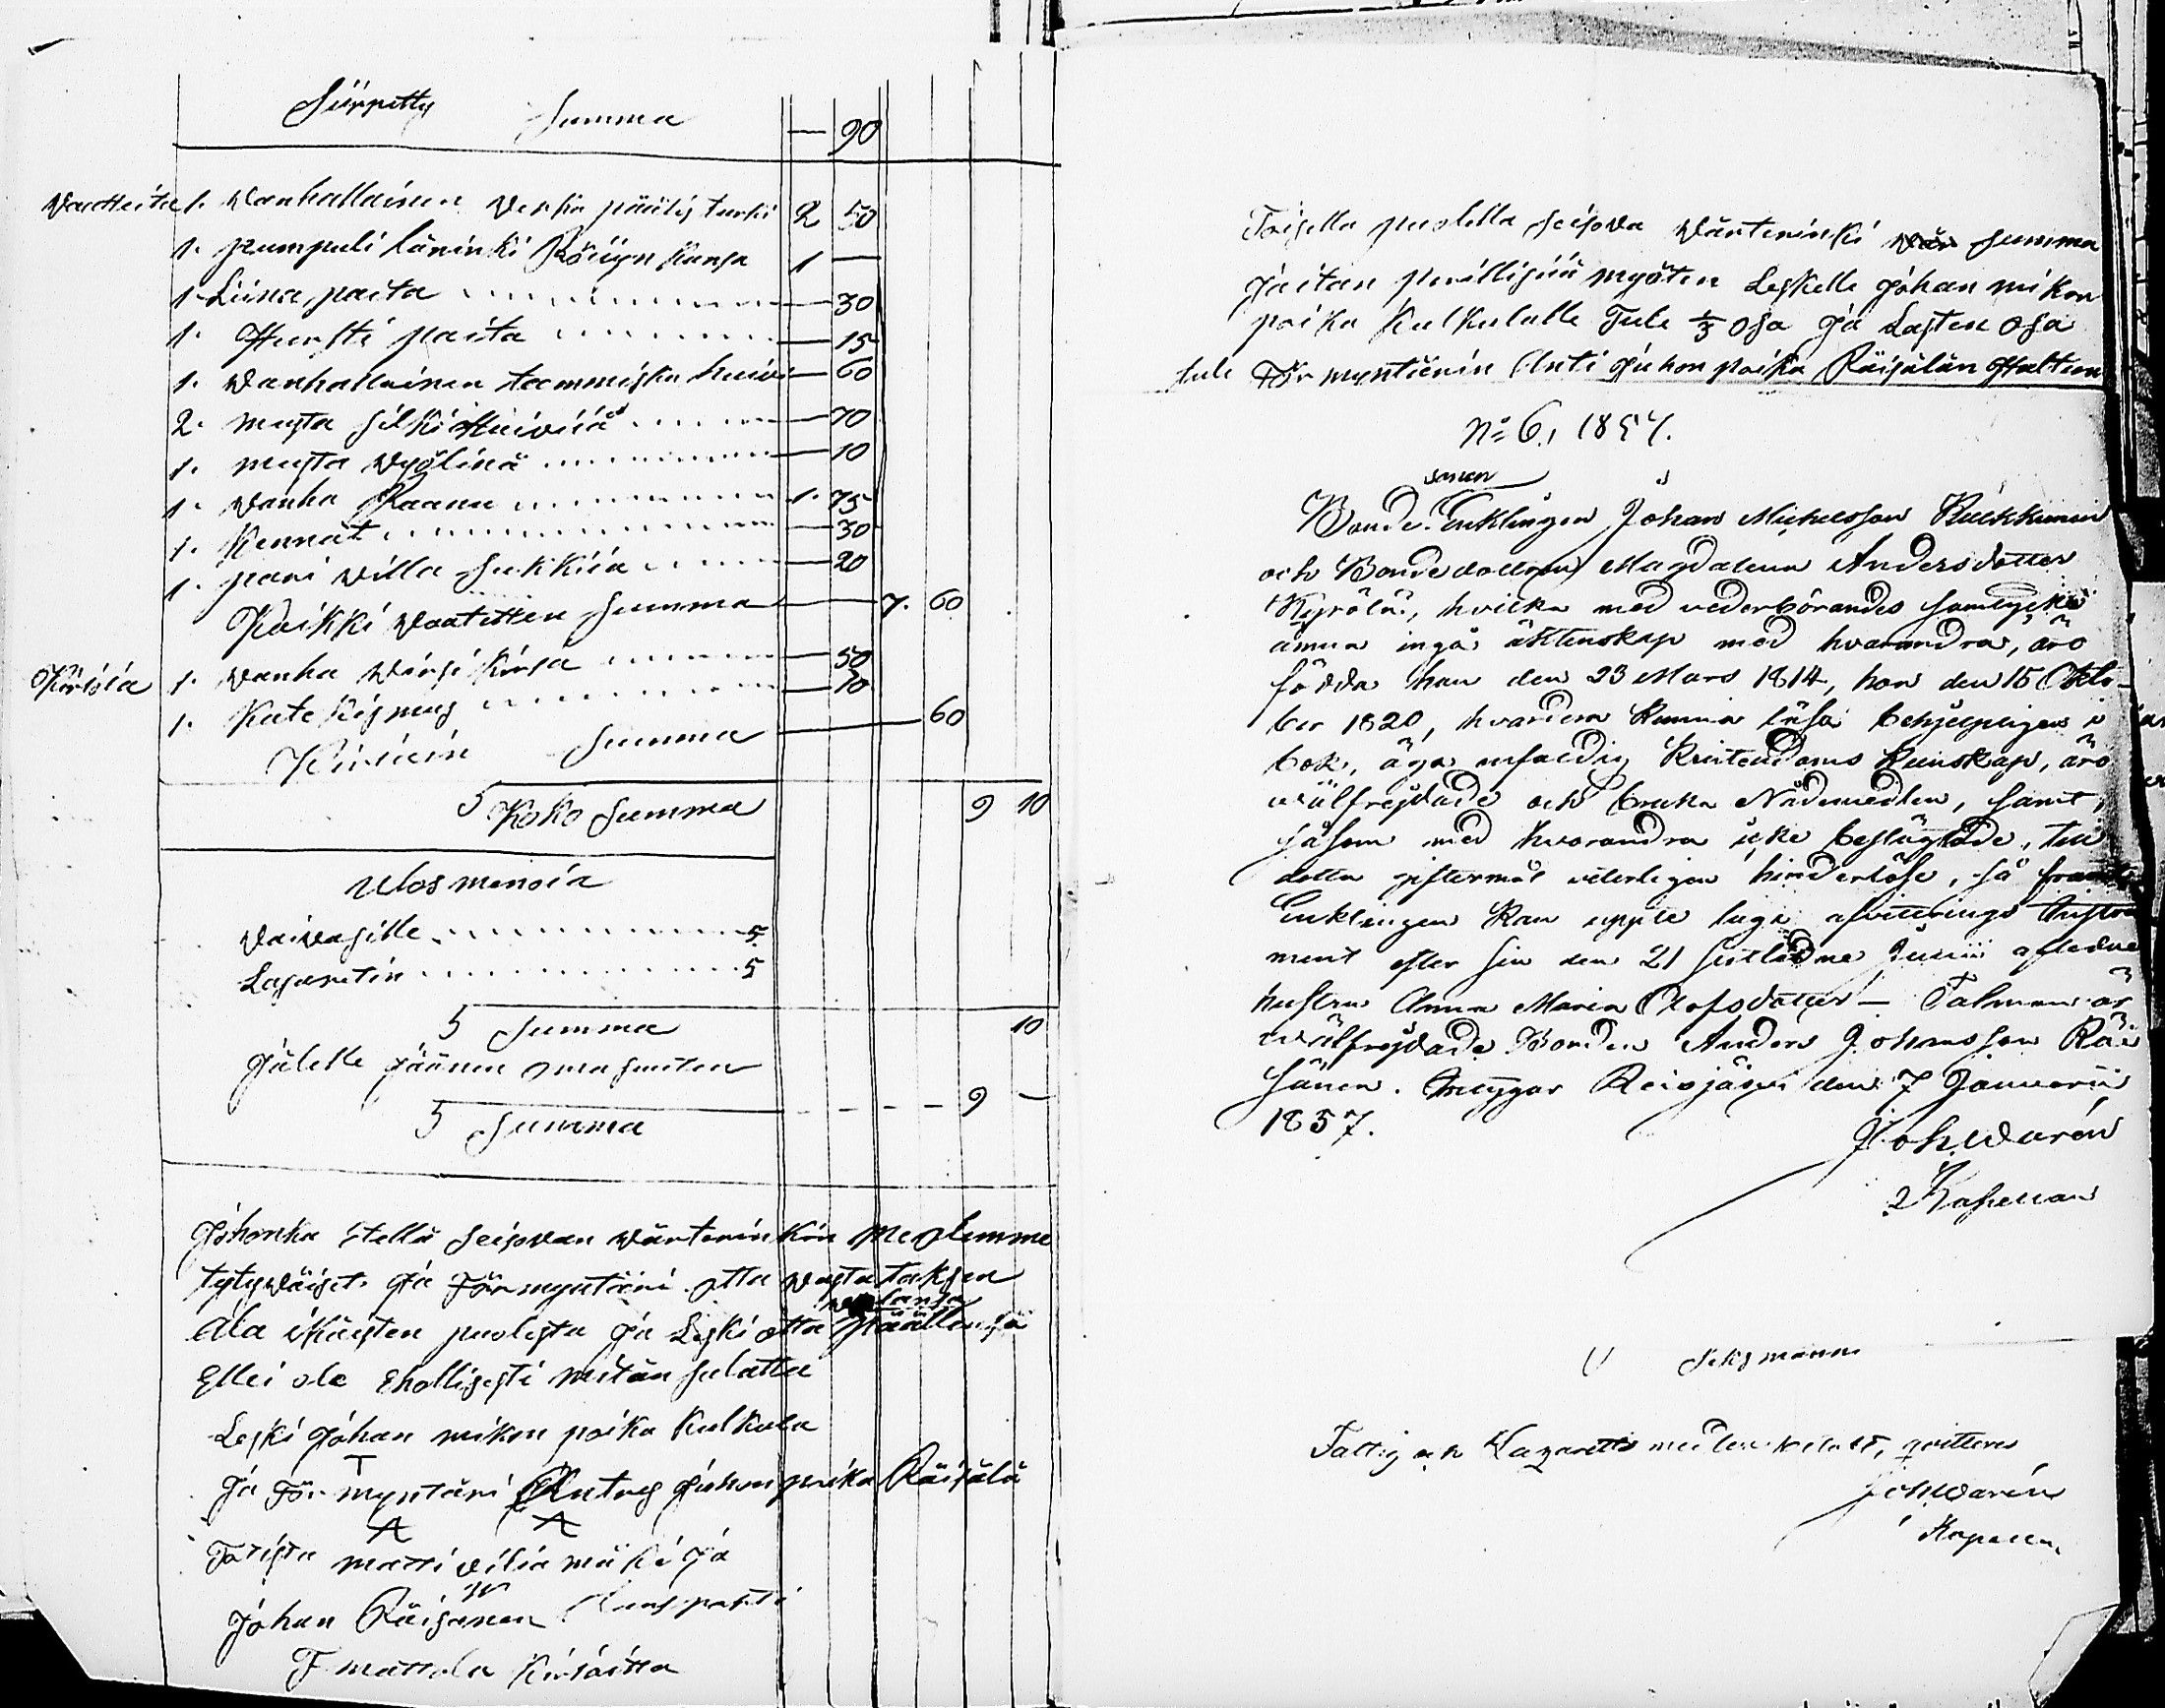 Siirretty Summa — 90
Vaatteita 1. Wanhallainen Verka päälis turki 2 50
1. pumpuliläninki Röijyn kansa 1 —
1. Liina paita — 30
1. Hursti paita — 15
1. Wanhallainen tammiska huivi — 60
2. musta silki Huiviä — 70
1. musta Wyölinä — 10
1. Wanha Raanu 1. 75
1. Kennät — 30
1. pari villa Sukkiia — 20
Kaikki Vaatetten Summa 7. 60
Kirioia 1. Wanha Wirsi kirja — 50
1. Katekismus — 10
Kirioin Summa 60
S Koko Summa 9 10
Ulos menoia
Vaivasille 5
Lasaretin 5
S Summa 10
Jälelle jäänen oma suuten
S Summa 9 —
Johonka Itellä seisovan Wärterinkin Me olemme
tytyväiset Ja Förmyntäri otta vasta taksen
vastansa
Ala ikäisten puolesta Ja Leski otta päällensä
Ellei ole Eholisesti mitän sulattu
Leski Johan mikon poika Kulkula
Ja Förmyntäri Antreg Juhon poika Räisälä
Totista matti vilia mäki Ja
Johan Räisänen
F. mattola kirioitta
Toisella puolella seisova Wärterinki summa
Jaetan perillisiä myöten Leskelle Johan mikon
poika Kulkulalle Tule 1/3 Osa Ja Lasten Osa
tule För myntärin Anti Juhon poika Räisälän Haltuun
No 6, 1857.
sonen
Bonde Enklingen Johan Michelsson Kulkkunen
och Bondedottren Magdalena Andersdotter
Kyrölä, hvilka med vederbörandes samtycke
ämna ingå äktenskap med hvarandra, äro
födda han den 23 Mars 1814, hon den 15 Okto-
ber 1820, hvardera kunna läsa behjelpligen i
bok, äga enfaldig kristendoms kunskap, äro
välfrejdade och bruka Nådemedlen, samt,
såsom med hvarandra icke beslägtade, till
detta giftermål veterligen hinderlöse, så framt
Enklingen kan uppte laga afvittrings Instru
ment efter sin den 21 sistlidne Junii aflidne
hustru Anna Maria Olofsdotter — Talman är
välfrejdade Bonden Anders Johansson Räi
sänen. Intygar Reisjärvi den 7 Januarii
1857.
Joh. Warén
Kapellan
Fattig och Lazaretts medlen betalt, qvitteras
Joh Warén
Kapellan